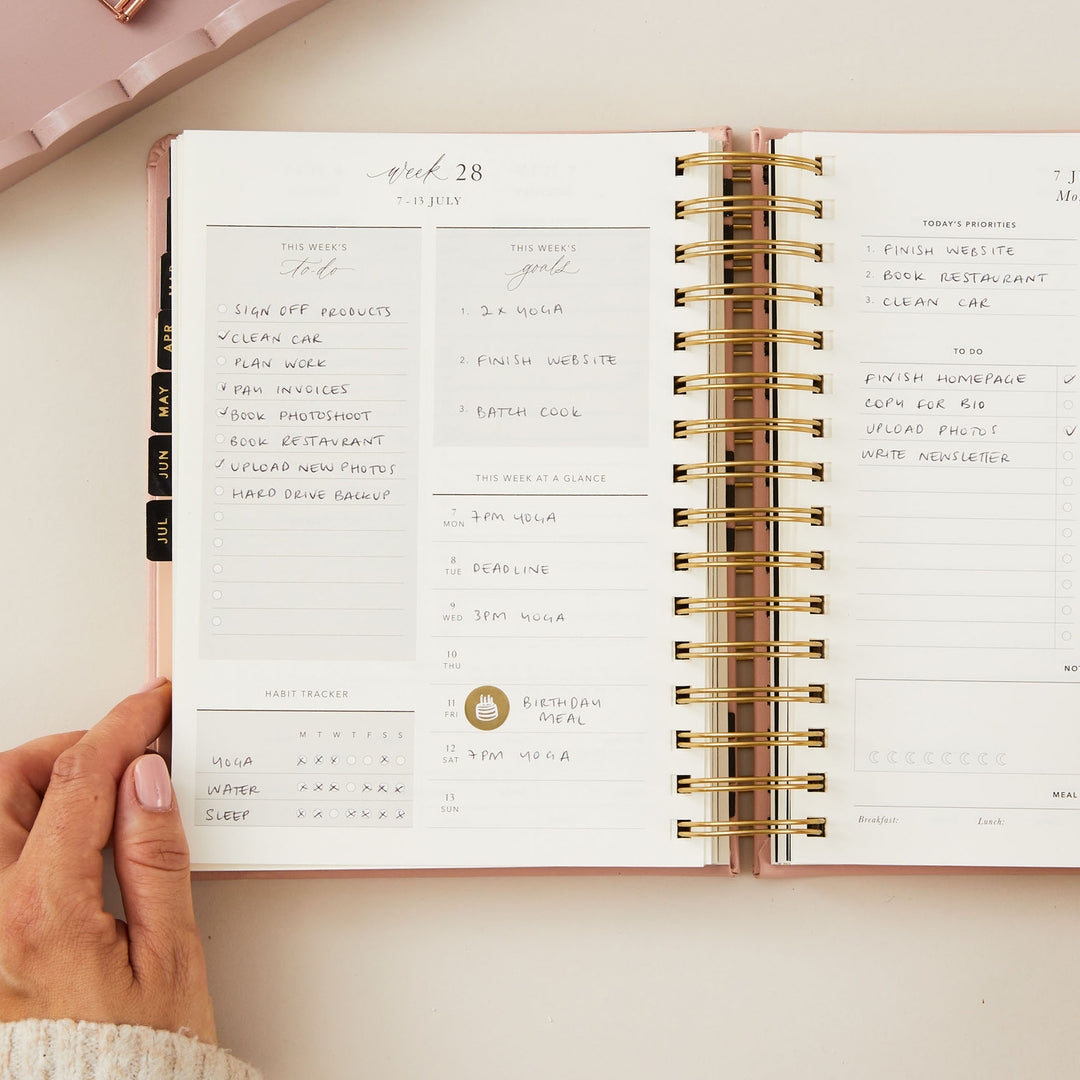 week 28
7 - 13 JULY
THIS WEEK'S
to-do
SIGN OFF PRODUCTS
CLEAN CAR
PLAN WORK
PAY INVOICES
BOOK PHOTOSHOOT
BOOK RESTAURANT
UPLOAD NEW PHOTOS
HARD DRIVE BACKUP
THIS WEEK'S
goals
1. 2 x YOGA
2. FINISH WEBSITE
3. BATCH COOK
THIS WEEK AT A GLANCE
7
MON 7PM YOGA
8
TUE DEADLINE
9
WED 3PM YOGA
10
THU
11
FRI BIRTHDAY
MEAL
12
SAT 7PM YOGA
13
SUN
HABIT TRACKER
M T W T F S S
YOGA
WATER
SLEEP
APR
MAY
JUN
JUL
TODAY'S PRIORITIES
1. FINISH WEBSITE
2. BOOK RESTAURANT
3. CLEAN CAR
TO DO
FINISH HOMEPAGE
COPY FOR BIO
UPLOAD PHOTOS
WRITE NEWSLETTER
MEAL
Breakfast: Lunch: